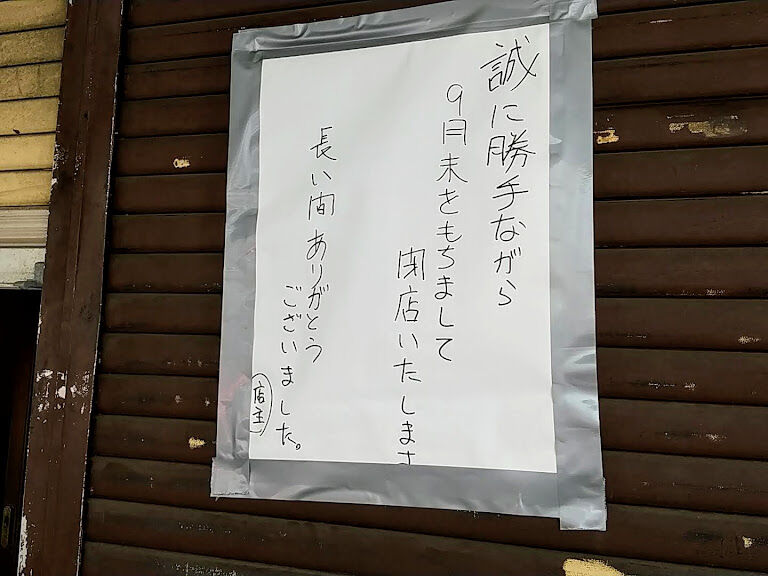 誠に勝手ながら
9月末をもちまして
閉店いたします
長い間ありがとう
ございました。
店主